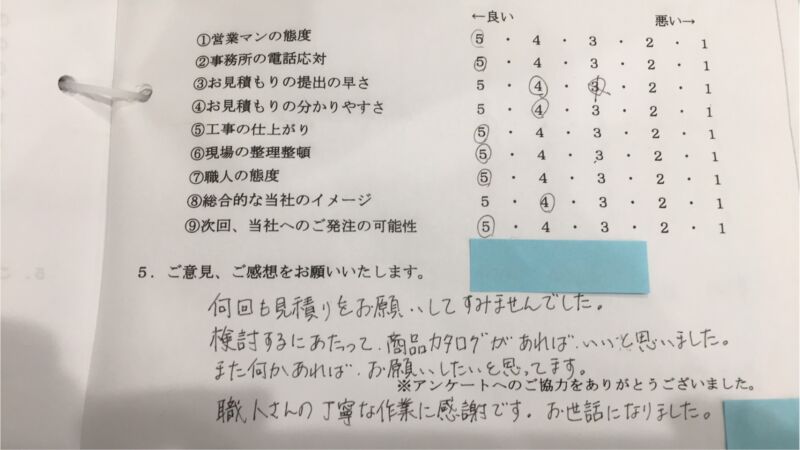 ←良い 悪い→
①営業マンの態度 5・4・3・2・1
②事務所の電話応対 5・4・3・2・1
③お見積もりの提出の早さ 5・4・3・2・1
④お見積もりの分かりやすさ 5・4・3・2・1
⑤工事の仕上がり 5・4・3・2・1
⑥現場の整理整頓 5・4・3・2・1
⑦職人の態度 5・4・3・2・1
⑧総合的な当社のイメージ 5・4・3・2・1
⑨次回、当社へのご発注の可能性 5・4・3・2・1
5．ご意見、ご感想をお願いいたします。
何回も見積りをお願いしてすみませんでした。
検討するにあたって、商品カタログがあれば、いいと思いました。
また何かあれば、お願いしたいと思ってます。
※アンケートへのご協力をありがとうございました。
職人さんの丁寧な作業に感謝です。お世話になりました。